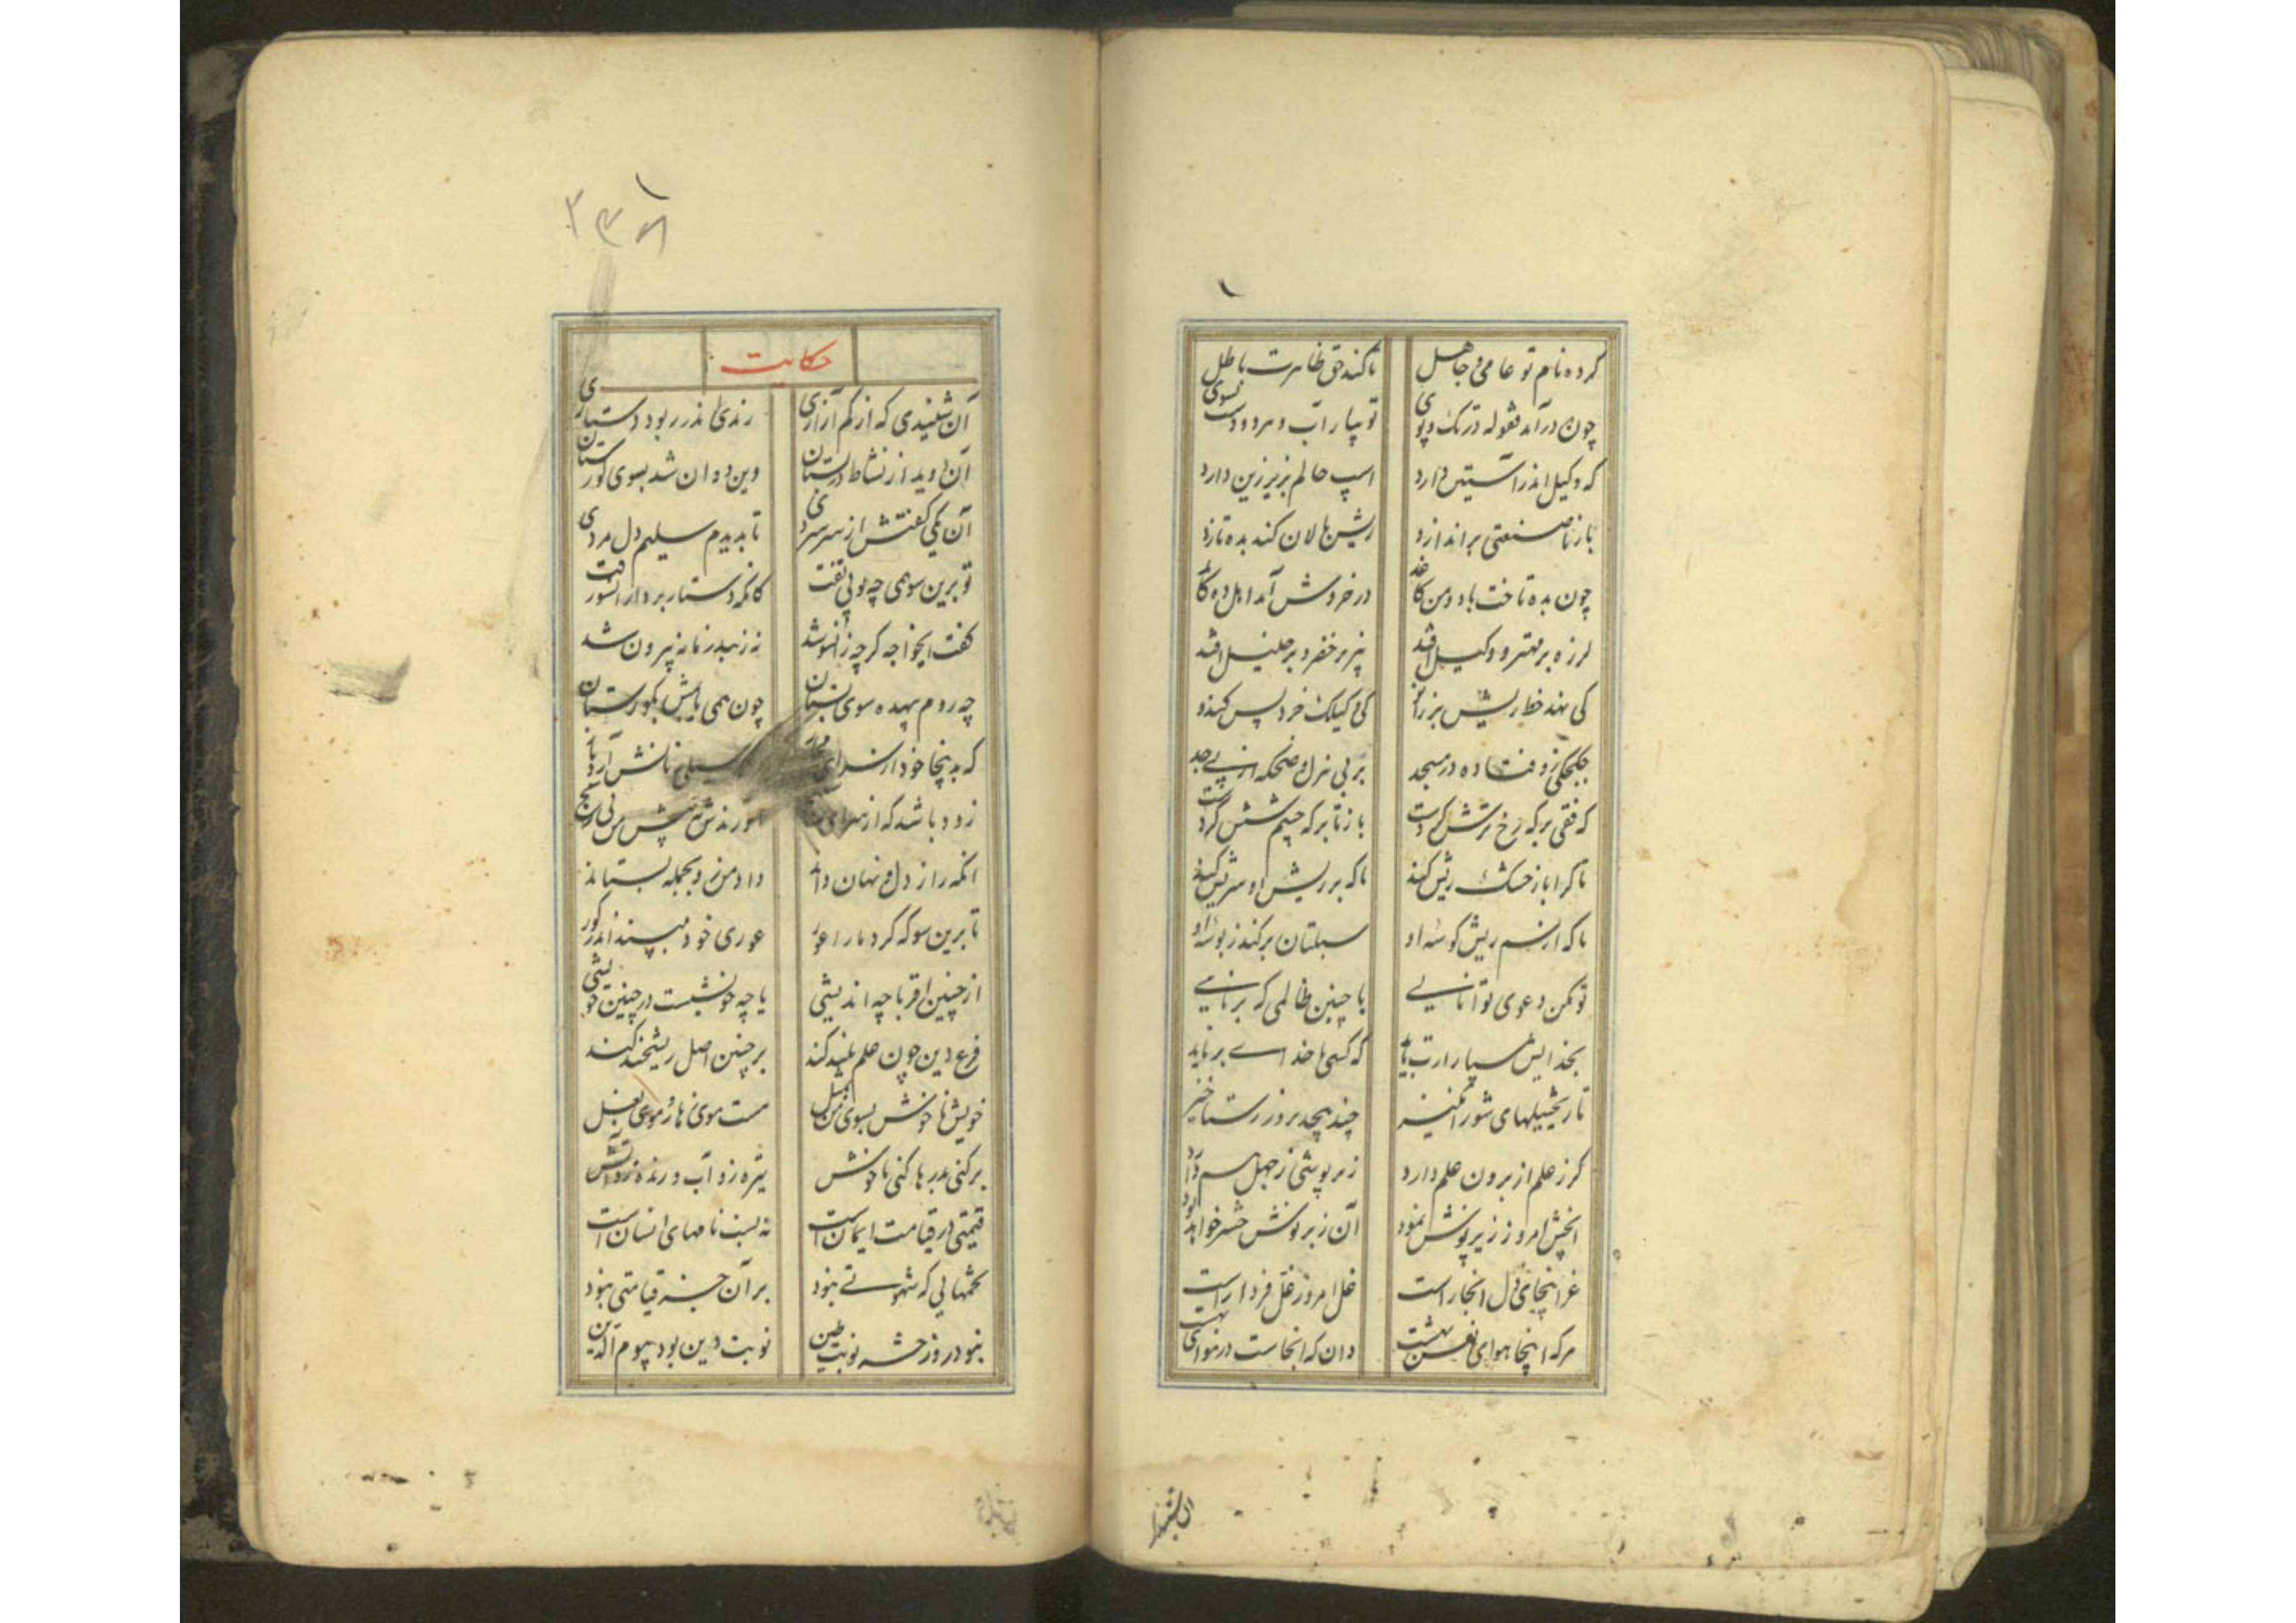 کرده نام تو عامی و جاهل تا کند حق ظاهرت باطل
چون درآمد فضوله در تک و پوی تو بیار آب و مرد دست بشوی
که وکیل اندر آستین دارد اسپ حالم بزیر زین دارد
باز تا صنعتی براندازد ریش مالان کند بده تازد
چون بده تاخت باد و من کاغذ در خروش آمد اهل ده کآمد
لرزه بر مهتر و وکیل افتد تیز بر خضر و بر خلیل افتد
کی نهد خط ریش بز را نز کی وکیلک خرد پس کندو
جکجکی زو فتاده در مسجد بر بی هزل و ضحکه از پی جد
که فقی بر که رخ ترش کردست باز تا بر که خشم شش کردست
تا کرا باز خشک ریش کند تا که بر ریش او سریش کند
تا که از سم ریش گوشه او سبلتان برکند ز توشه او
تو مکن دعوی توانایی با چنین ظالمی که برنایی
بخدایش سپار ارت باید که کسی با خدای برناید
تا ریخیلهای شورانگیز چند پیچد بروز رستاخیز
کرز علم از برون علم دارد زیرپوشی ز جهل هم دارد
آنچش امروز زیرپوش نمود آن زبرپوش حشر خواهد بود
غز اینجای دل انجاراست غل امروز غل فرداراست
هرکه اینجا هوای نفس بهشت دان که آنجاست در هوای بهشت
آن بشنید
۱
۳۳۸
حکایت
آن شنیدی که از کم آزاری رندی اندر ربود دستاری
آن دوید از نشاط در بستان وین دوان شد بسوی گورستان
آن یکی گفتش از سر سردی تا بدیدم سلیم دل مردی
تو برین سو همی چه پویی تفت کانکه دستار برد از آنسو رفت
گفت ایخواجه گرچه زانسو شد نه ز بند زمانه بیرون شد
چه روم بیهده سوی بستان چون همی یابمش بگورستان
که بدینجا خود از سرای سیلی نانش آرد باز
زود باشد که از سرای آورندش به پیش من بی رنج
آنکه راز دل و نهان داند داد من زو بجمله بستاند
تا برین سو که کرد ما را عور عوری خود ببیند اندر گور
از چنین اقربا چه اندیشی یا چه خونشیست در چنین خویشی
فرع دین چون علم بلند کند بر چنین اصل ریشخند کند
خویش ناخوش بسوی من مثل هست موی زهار و موی بغل
برکنی بد رها کنی ناخوش تیره زو آب و رنده زو آتش
قیمتی در قیامت ایمانست نه نسب نامهای انسان است
تخمهایی که شهوتی نبود بر آن جز قیامتی نبود
نبود روز حشر نوبت طین نوبت دین بود بیوم الدین